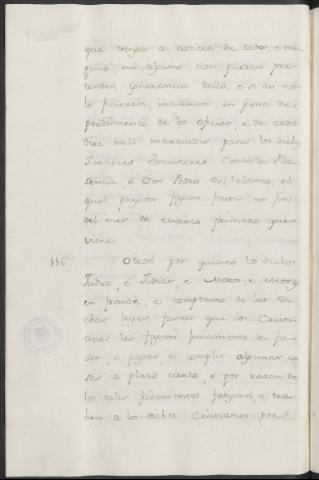 que venga a noticia de todos, e nin
guno, nin alguno non puedan pre-
tender ignorancia dello, e si asi non
lo ficieren, mandan en pena de
perdimiento de los oficios, é de cada
diez mill maravedis para los dichos
Sennores Executores Condes de Pla
sencia, é Don Pedro de Velasco; el
qual pregon fagan fasta en fin
del mes de Marzo primero que
viene.
116. Otrosi por quanto los dichos
Judios, é Judias, é Moros, é Moras
en fraude, é corrompimiento de las di
chas leyes facen que los Christi
anos les fagan juramento de fa-
cer, é pagar é complir algunas co
sas a plazo cierto, é por razon de
los tales juramentos fatigan, e tra
hen a los dichos Christianos por